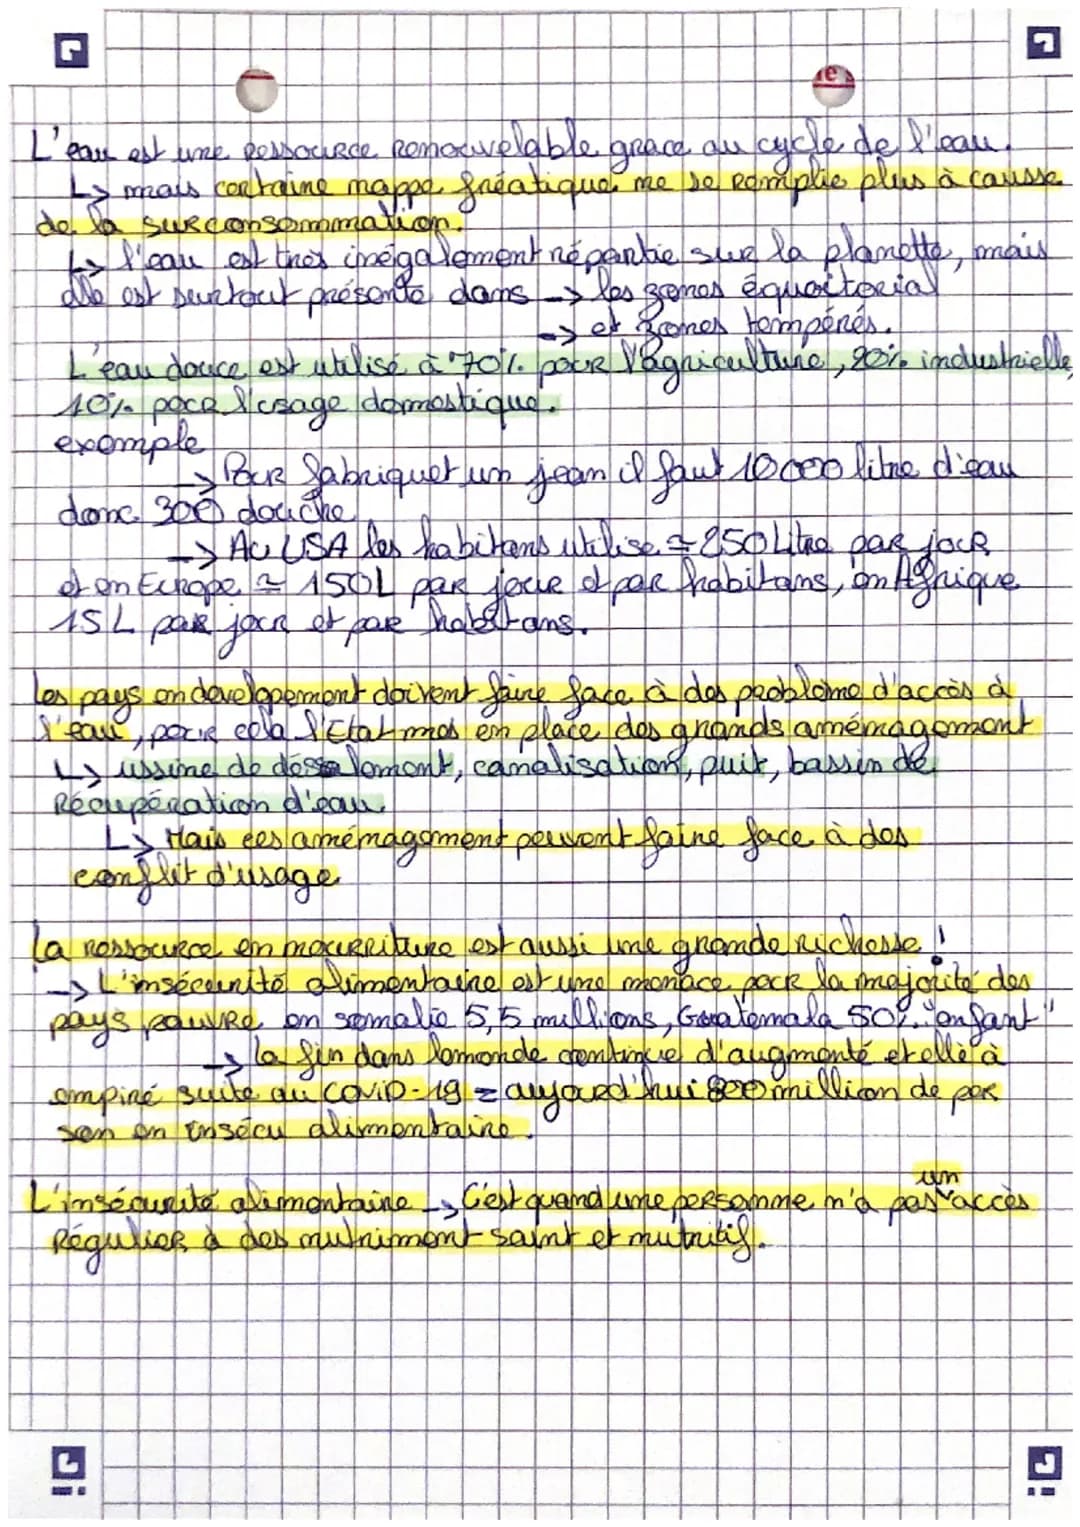 L'eau est une ressource renouvelable grace au cycle de l'eau.
↳ mais certaine nappe fréatique ne se remplie plus à causse
de la surconsommation.
↳ l'eau est très inégalement répartie sur la planette, mais
elle est surtout présente dans -> les zones équoitorial
-> et zones tempérés.
L'eau douce est utilisé à 70% pour l'agriculture, 20% industrielle,
10% pour l'usage domestique.
exemple
-> Pour fabriquer un jean il faut 10 000 litre d'eau
donc 300 douche
-> Au USA les habitans utilise ≃ 250 Litre par jour
et en Europe ≃ 150L par jour et par habitans, en Afrique
15 L par jour et par habitans.
Les pays en developpement doivent faire face à des problème d'accès à
l'eau, pour cela l'Etat mes en place des grands aménagement
↳ ussine de déssalement, canalisation, puit, bassin de
Récupération d'eau.
↳ Mais ces aménagement peuvent faire face à des
conflit d'usage
La ressource en nourriture est aussi une grande richesse !
-> L'insécurité alimentaire est une menace pour la majorité des
pays pauvre en somalie 5,5 millions, Guatemala 50% "enfant"
-> la fin dans lemonde continue d'augmenté et elle à
empiré suite au COVID-19 = aujourd'hui 800 million de per
son en insécu alimentaire.
un
L'insécurité alimentaire -> C'est quand une personne n'a pas accès
Régulier à des nutriment saint et nutritif.